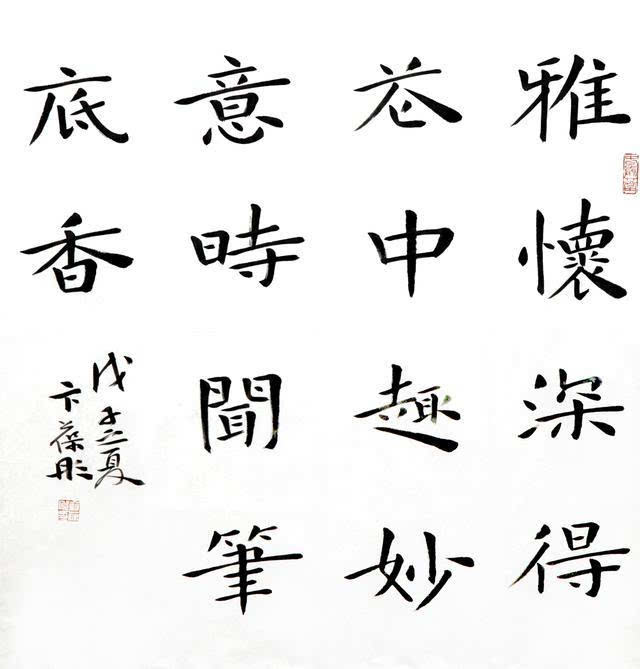 雅懷深得
花中趣妙
意時聞筆
底香
戊子之夏
卞葆彤